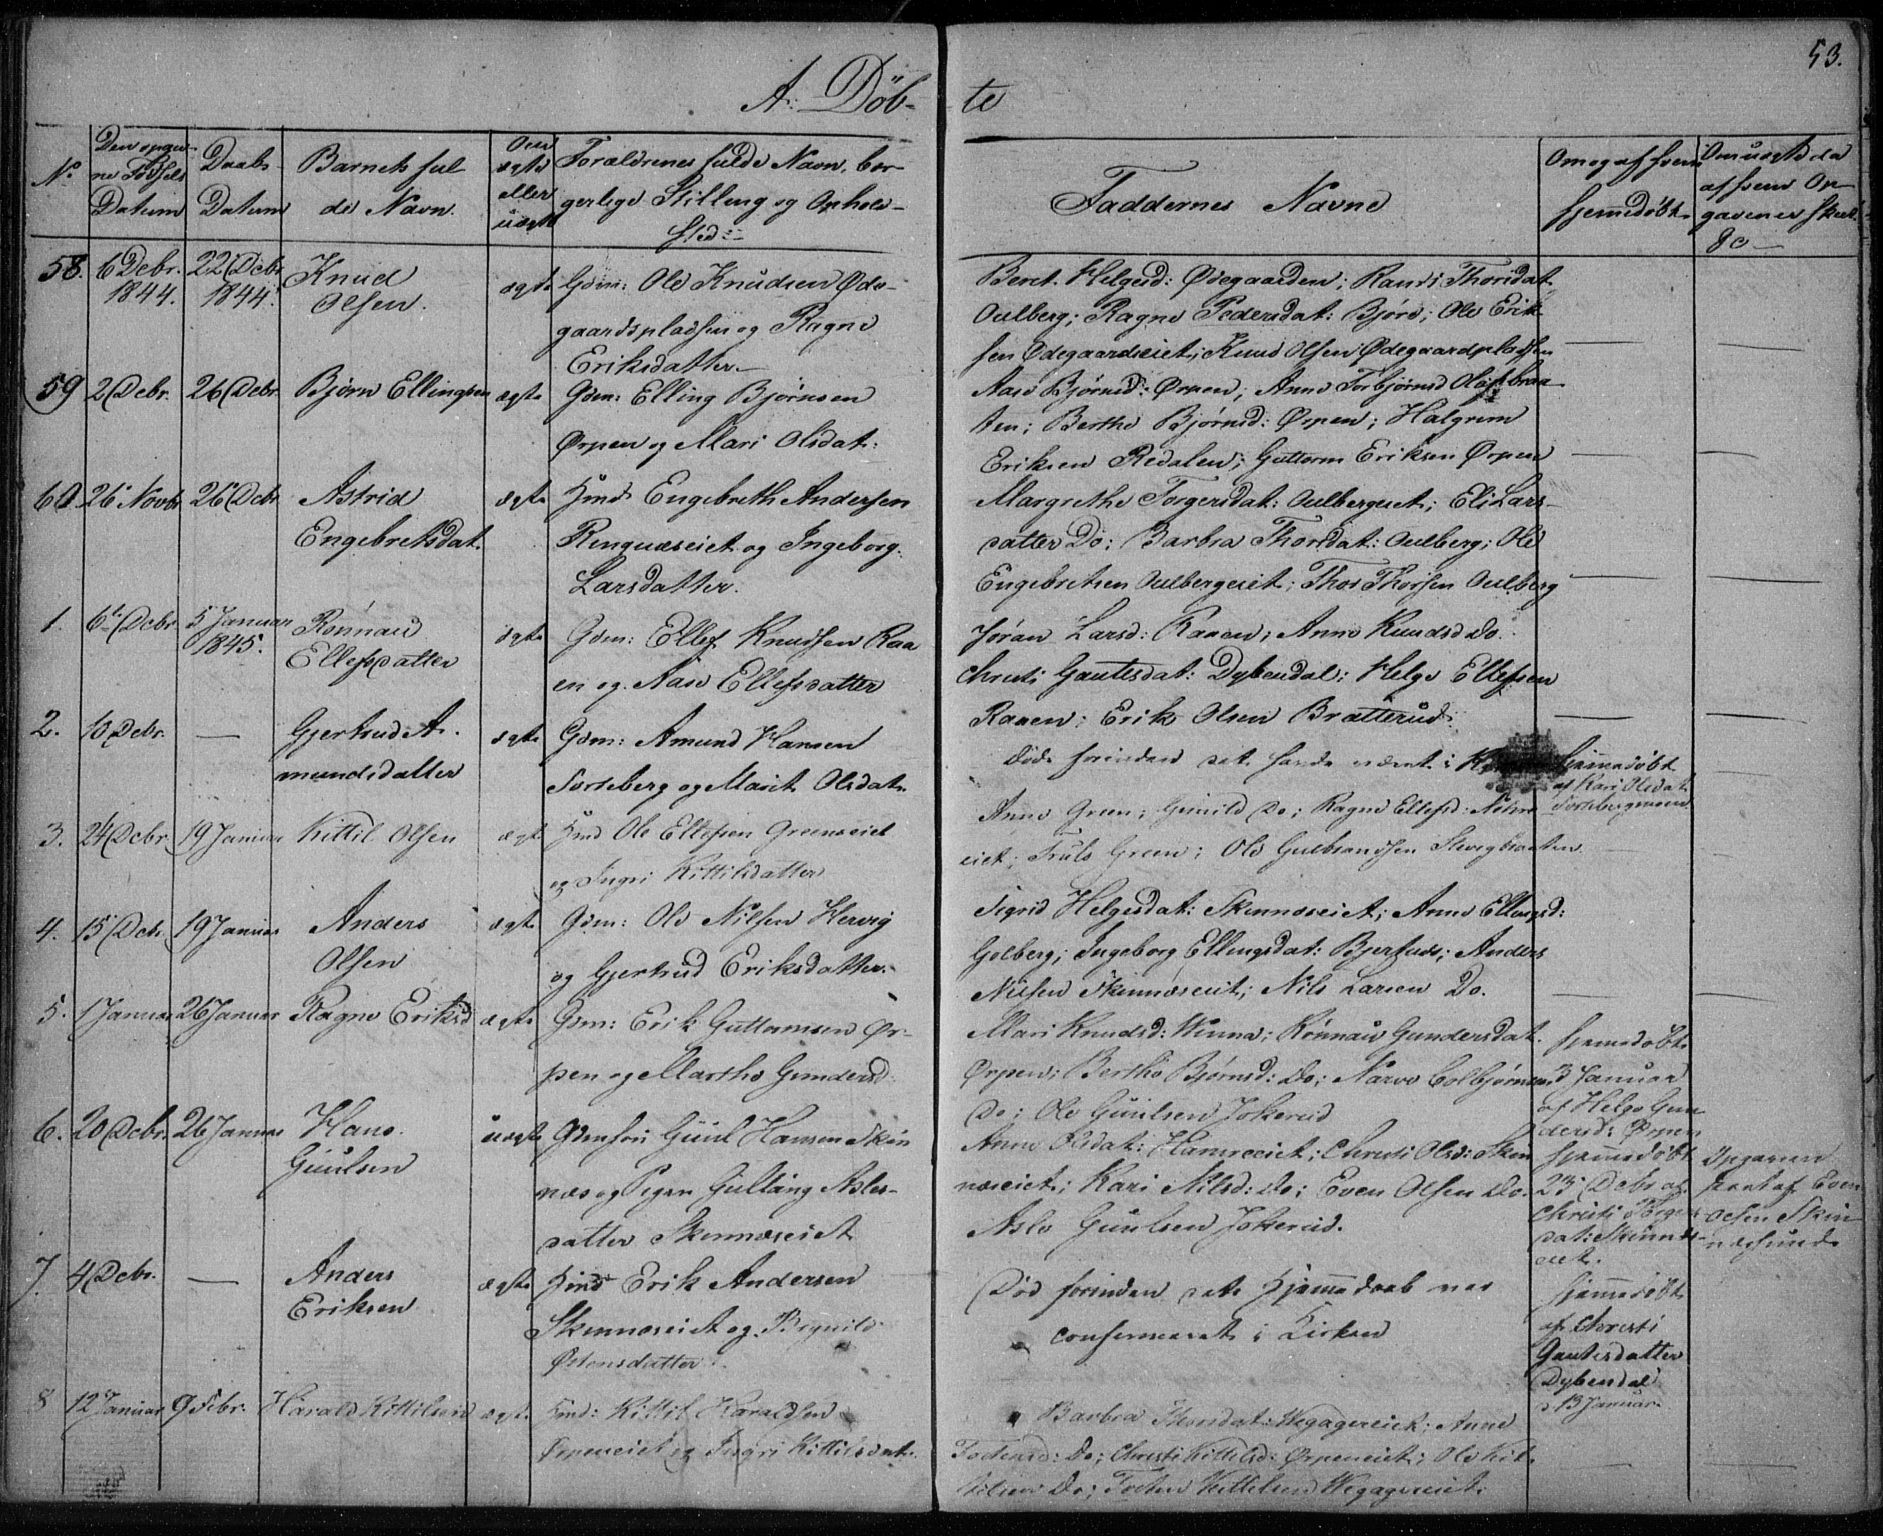 53.
A. Döb- te
No
Den opgiv-
ne Fødsels
Datum
Daabs
Datum
Barnets ful
de Navn.
Om
ægte
eller
uægte
Forældrenes fulde Navn, bor-
gerlige Stilling og Opholds-
sted
Faddernes Navne
Om og af hvem
hjemmedøbt
Om uægte da
af hvem Op-
gaven er skeet
58. 6 Debr. 22 Debr Knud ægte Gdm: Ole Knudsen Øde-
1844. 1844. Olsen.
gaardspladsen og Ragne
Eriksdatter.
Beret Helgesd: Ødegaarden; Randi Thorsdat
Aulberg; Ragne Pedersdat: Bjøre; Ole Erik-
sen Ødegaardseiet; Knud Olsen Ødegaardpladsen
59 2 Debr. 26 Debr. Bjørn Ellingsen ægte Gdm: Elling Bjørnsen
Ørpen og Mari Olsdat:
Aase Bjørnsd: Ørpen; Anne Torbjørnsd Olafsbraa-
ten; Berthe Bjørnsd: Ørpen; Halgrim
Eriksen Redalen; Guttorm Eriksen Ørpen
60 26 Novbr 26 Debr Astrid ægte Hmd: Engebreth Andersen
Engebretsdat.
Ringnæseiet og Ingeborg
Larsdatter.
Margrethe Torgersdat: Aulbergeiet; Eli Lars-
datter Do; Barbra Thorsdat: Aulberg; Ole
Engebretsen Aulbergeiet; Thor Thorsen Aulberg
1. 6te Debr. 5 Januar Rønnau ægte Gdm: Ellef Knudsen Raa
1845. Ellefsdatter
en og Aase Ellefsdatter
Jøran Larsd: Raaen; Anne Knudsd Do.
Christi Gautesdat: Dybendal; Helge Ellefsen
Raaen; Erik Olsen Bratterud
2. 10 Debr. — Gjertrud A- ægte Gdm: Amund Hansen
mundsdatter
Sorteberg og Marit Olsdat.
døde forinden det havde været i
Hjemmedøbt
af Kari Olsdat
Sortebergmoen
3. 24 Debr. 19 Januar Kittil Olsen ægte Hmd Ole Ellefsen Greenseiet
og Ingri Kittilsdatter
Anne Green; Gunild Do; Ragne Ellefsd:
eiet; Truls Green; Ole Gulbrandsen
4. 15 Debr. 19 Januar Anders ægte Gdm: Ole Nilsen Hervig
Olsen
og Gjertrud Eriksdatter.
Sigrid Helgesdat: Skinnæseiet; Anne Ellingsd:
Golberg; Ingeborg Ellingsdat: Bjertnæs; Anders
Nilsen Skinnæseiet; Nils Larsen Do.
5. 1 Januar 26 Januar Ragne Eriksd ægte Gdm: Erik Guttormsen Ør-
pen og Marthe Gundersd.
Mari Knudsd: Winna; Rønnau Gundersdat.
Ørpen; Berthe Bjørnsd: Do; Narve Colbjørnsen
Do; Ole Guulsen Jokerud
Hjemmedøbt
3 Januar
af Helge Gun
dersd: Ørpen
6. 20 Debr. 26 Januar Hans uægte Gdmsøn Guul Hansen Skin
Guulsen
næs og Pigen Gulling Asles-
datter Skinnæseiet
Anne Olsdat: Hamreeiet; Christi Olsd: Skin
næseiet; Kari Nilsd: Do; Even Olsen Do.
Asle Guulsen Jokerud.
Hjemmedøbt
23 Debr af
Christi Torger
dat: Skinnæs-
eiet.
Opgaven
skeet af Even
Olsen Skin
næsund
7. 4 Debr. — Anders ægte Hmd Erik Andersen
Eriksen
Skinnæseiet og
Østensdatter.
Død forinden dets Hjemmedaab var
confirmeret i Kirken
Hjemmedøbt
af Christi
Gautesdatter
Dybendal
d 13 Januar.
8 12 Januar 9 Febr. Harald Kittilsen ægte Hmd: Kittil Haraldsen
Ørpeneiet og Ingri Kittilsdat.
Barbra Thorsdat: Wegagereiet; Anne
Tostensd: Do; Christi Kittilsd: Ørpeneiet; Ole Kit-
tilsen Do; Tosten Kittelsen Wegagereiet.